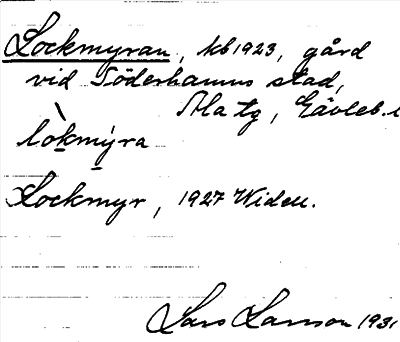 Lockmyran, kb 1923, gård
vid Söderhamns stad,
Ala tg, Gävleb. l
lòkmýra
Lockmyr, 1927 Widell.
Lars Larsson 1931